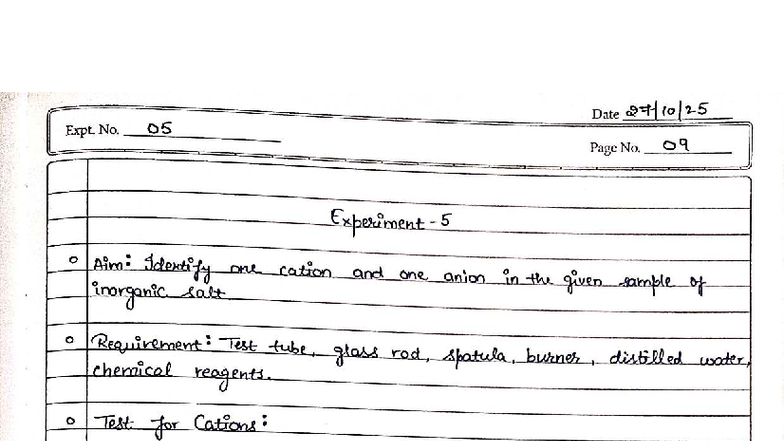 Date 27/10/25
Expt. No. 05
Page No. 09
Experiment - 5
Aim: Identify one cation and one anion in the given sample of
inorganic salt.
Requirement: Test tube, glass rod, spatula, burner, distilled water,
chemical reagents.
Test for Cations: